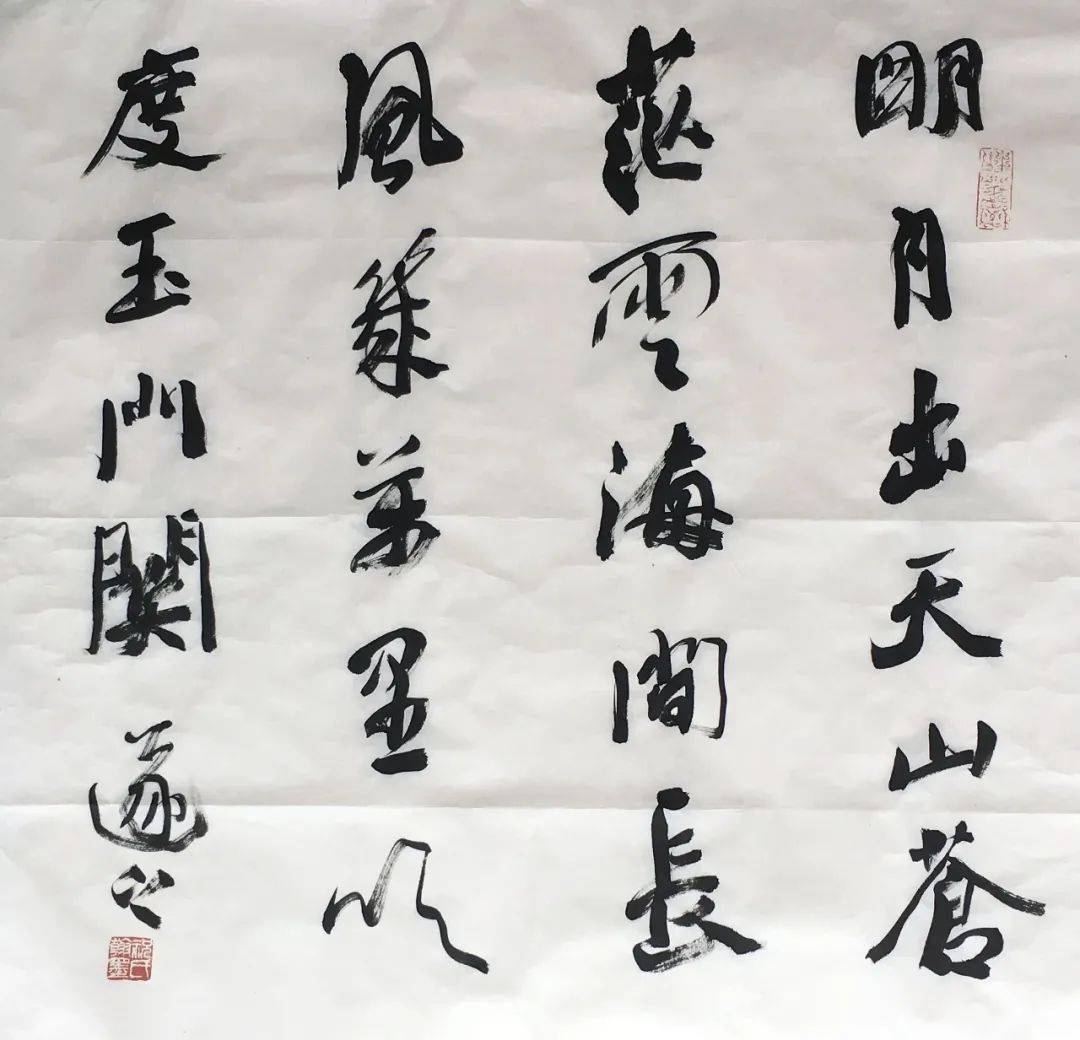 明月出天山蒼
茫雲海間長
風幾萬里吹
度玉門關 遂
祝氏翰墨